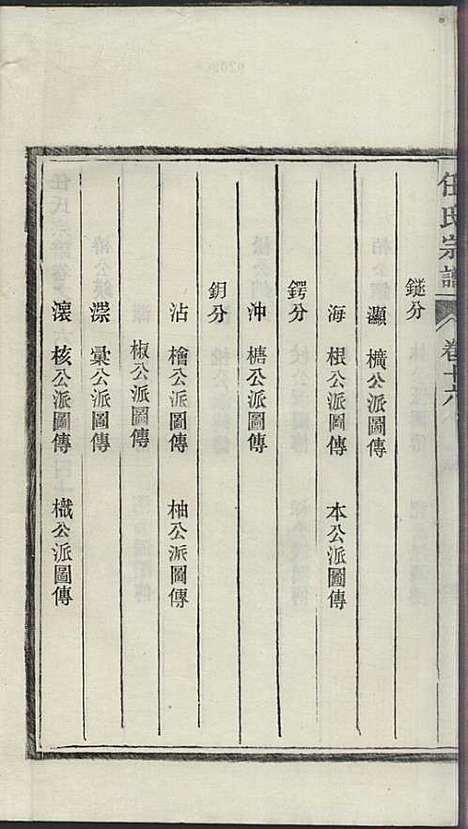 任氏宗譜 卷十六
鐩分
灝 櫎公派圖傳
海 根公派圖傳 本公派圖傳
鍔分
沖 榶公派圖傳
鈅分
沾 檜公派圖傳 柚公派圖傳
椒公派圖傳
漴 彙公派圖傳
瀤 核公派圖傳 檝公派圖傳